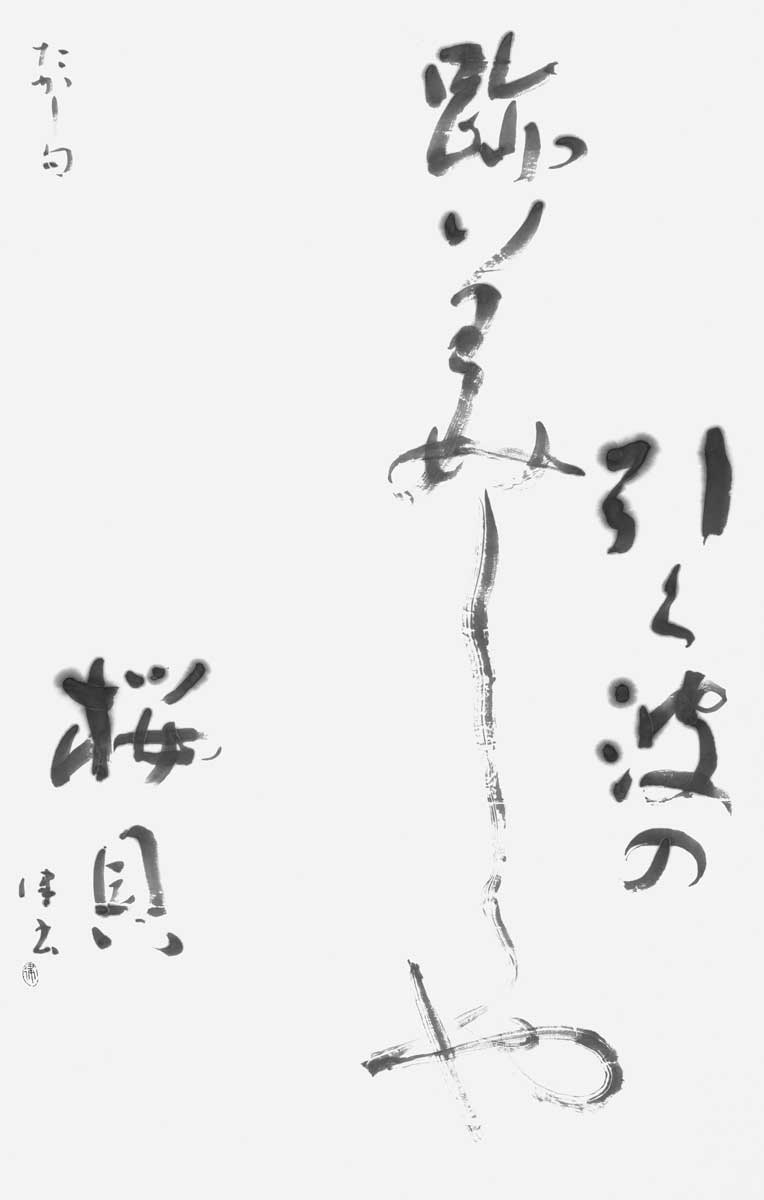 引く波の
跡美しや
桜貝
たかし句